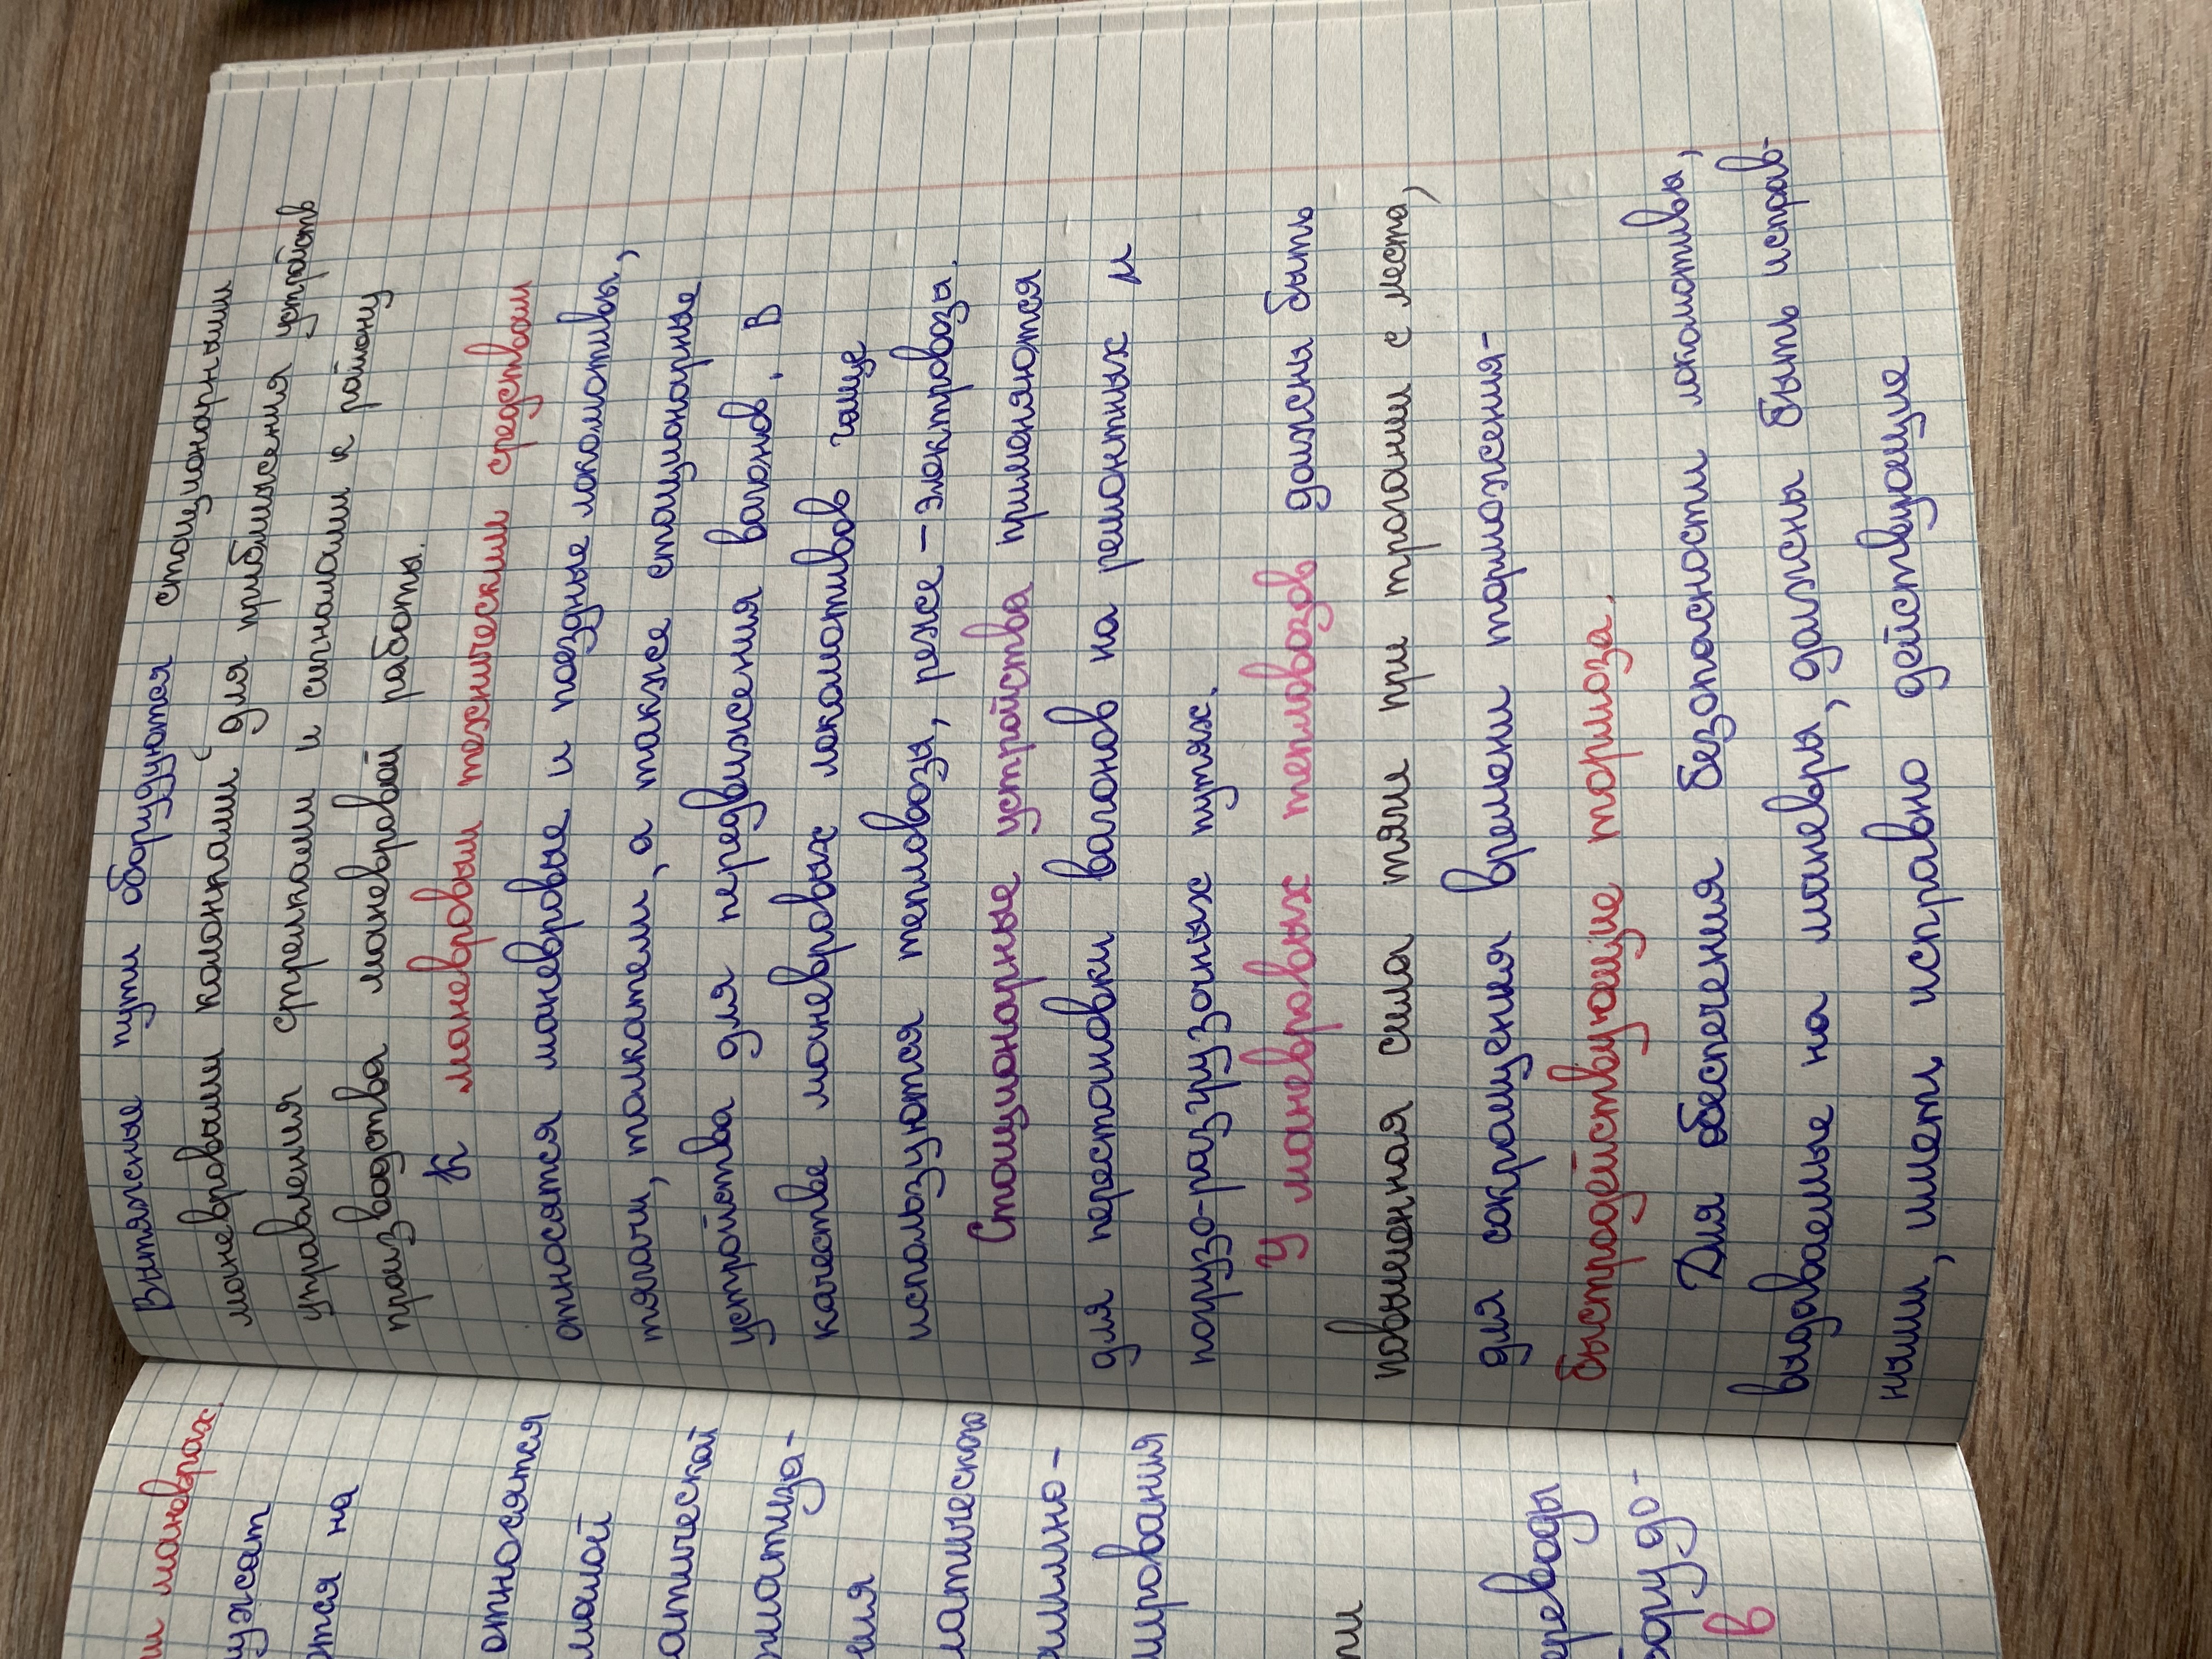 м маневрах.
ужат
тся на
относятся
мой
атической
матиза-
ния
матических
мирования
ереводы
бору до-
в
Вытяжные пути оборудуются стационарными
маневровыми колонками для приближения устройств
управления стрелками и сигналами к району
производства маневровой работы.
К маневровым техническим средствам
относятся маневровые и поездные локомотивы,
тягачи, толкатели, а также стационарные
устройства для передвижения вагонов. В
качестве маневровых локомотивов чаще
используются тепловозы, реже - электровозы.
Стационарные устройства применяются
для перестановки вагонов на ремонтных и
погрузо-разгрузочных путях.
У маневровых тепловозов должны быть
повышенная сила тяги при трогании с места,
для сокращения времени торможения-
быстродействующие тормоза.
Для обеспечения безопасности локомотивы,
выдаваемые на маневры, должны быть исправ-
ными, иметь исправно действующие